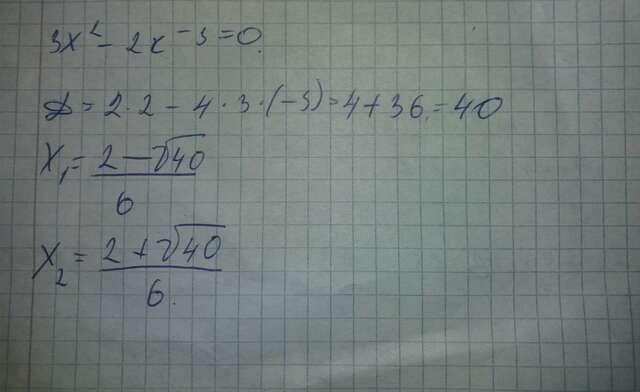 3x² - 2x - 3 = 0.
D = 2·2 - 4·3·(-3) = 4 + 36 = 40
x₁ = (2 - √40) / 6
x₂ = (2 + √40) / 6.